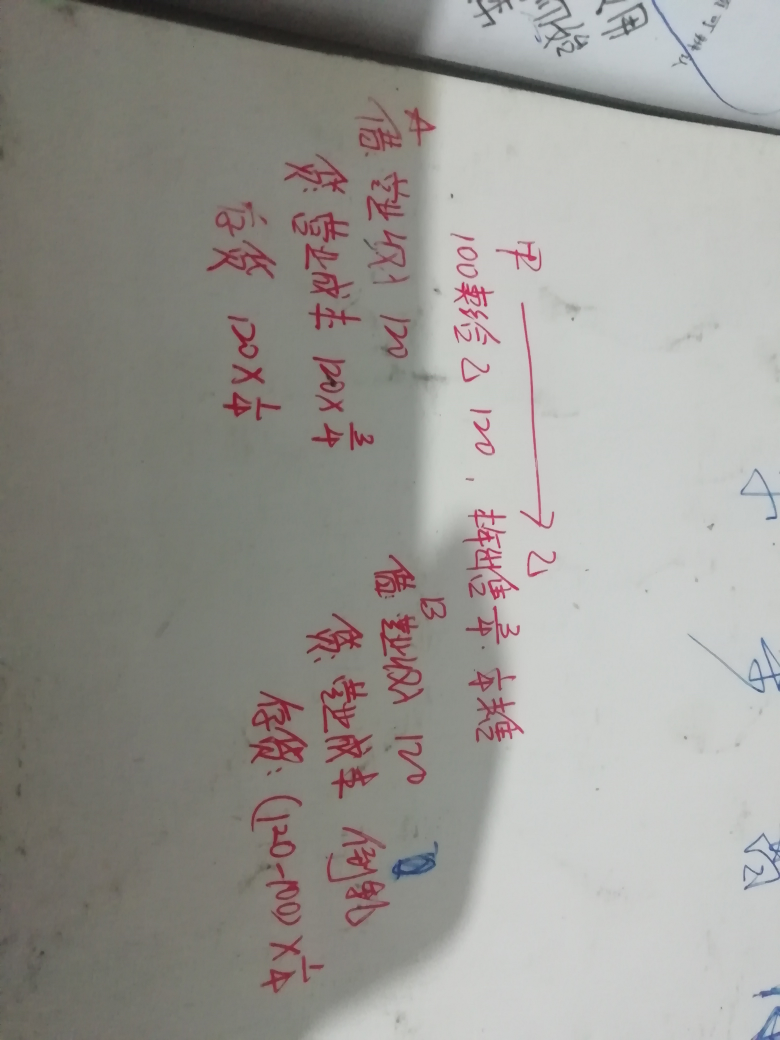 甲 → 乙
100卖给乙 120, 转售3/4. 1/4未售
A
借: 营业收入 120
贷: 营业成本 120×3/4
存货 120×1/4
B
借: 营业收入 120
贷: 营业成本 倒轧
存货: (120-100)×1/4